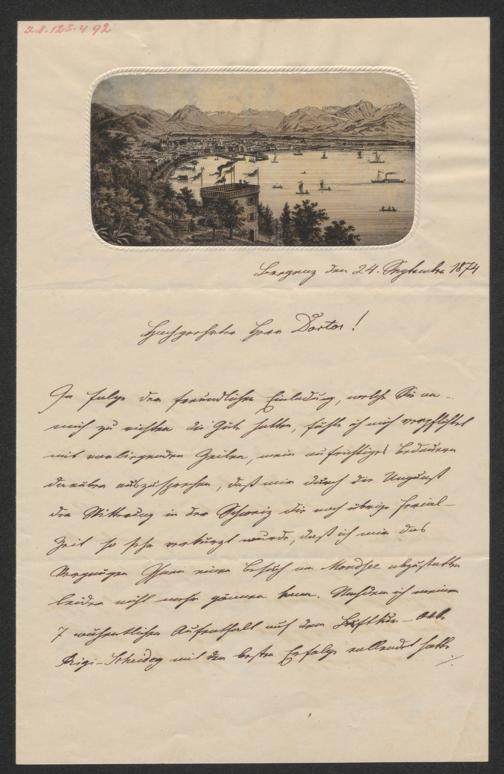 I.N. 125.492
Bregenz den 24. September 1874
Hochgeehrter Herr Doctor!
In Folge der freundlichen Einladung, welche Sie an
mich zu richten die Güte hatten, fühle ich mich verpflichtet
mit vorliegenden Zeilen, mein aufrichtiges Bedauern
darüber auszusprechen, daß mir durch die Ungunst
der Witterung in der Schweiz die noch übrige Ferial-
zeit so sehr verkürzt wurde, daß ich mir das
Vergnügen Ihnen einen Besuch am Mondsee abzustatten
leider nicht mehr gönnen kann. Nachdem ich meinen
7 wöchentlichen Aufenthalt auf dem
Rigi-Scheideg mit dem besten Erfolge vollendet hatte